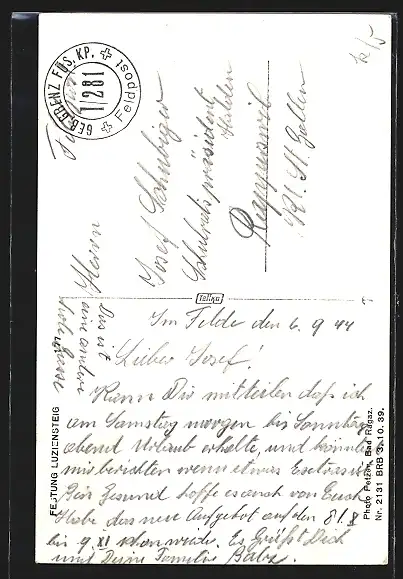 GEB. GRENZ FÜS. KP.
I/281
Feldpost
Herrn
Josef Schubiger
Schulratspräsident
Rapperswil
Kt. St. Gallen
Das ist
eine andere
FESTUNG LUZIENSTEIG
Photo Fetzer, Bad Ragaz.
Nr. 2131 BRB 3. 10. 39.
Im Felde den 6. 9 44
Lieber Josef!
Kann Dir mitteilen daß ich
am Samstag morgen bis Sonntag
abend Urlaub erhalte, und könntest
mir berichten wenn etwas
Bin Gesund hoffe es auch von Euch
Habe das neue Aufgebot auf den 8/I
bis 9. XI Es Grüßt Dich
und Deine Familie